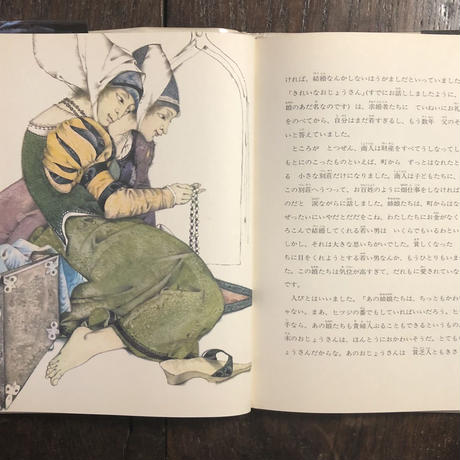 ければ、結婚なんかしないほうがましだといっていました。
「きれいなおじょうさん」(すでにお話ししましたように、
娘のあだ名なのです)は、求婚者たちに ていねいにお礼
をのべてから、自分はまだ若すぎるし、もう数年 父のそ
いと答えていました。
ところが とつぜん、商人は財産をすべてうしなってし
もとにのこったものといえば、町から ずっとはなれたと
る 小さな別荘だけになりました。商人は子どもたちに、
この別荘へうつって、お百姓のように畑仕事をしなければ
のだと 涙ながらに話しました。姉娘たちは、町からはな
ぜったいにいやだとだだをこね、わたしたちにお金がなく
ろこんで結婚してくれる若い男は いくらでもいるわと
しかし、それは大きな思いちがいでした。貧しくなった
ちに目をくれようとする若い男なんか、もうひとりもいま
た。この娘たちは気位が高すぎて、だれもに愛されていな
です。
人びとはいいました。「あの姉娘たちは、ちっともかわい
ゃない。まあ、ヒツジの番でもしていればいいだろう。ヒ
手なら、あの娘たちも貴婦人ぶることもできるというもの
末のおじょうさんは、ほんとうにおかわいそうだ。とても
ょうさんだからな。あのおじょうさんは 貧乏人ともきさ